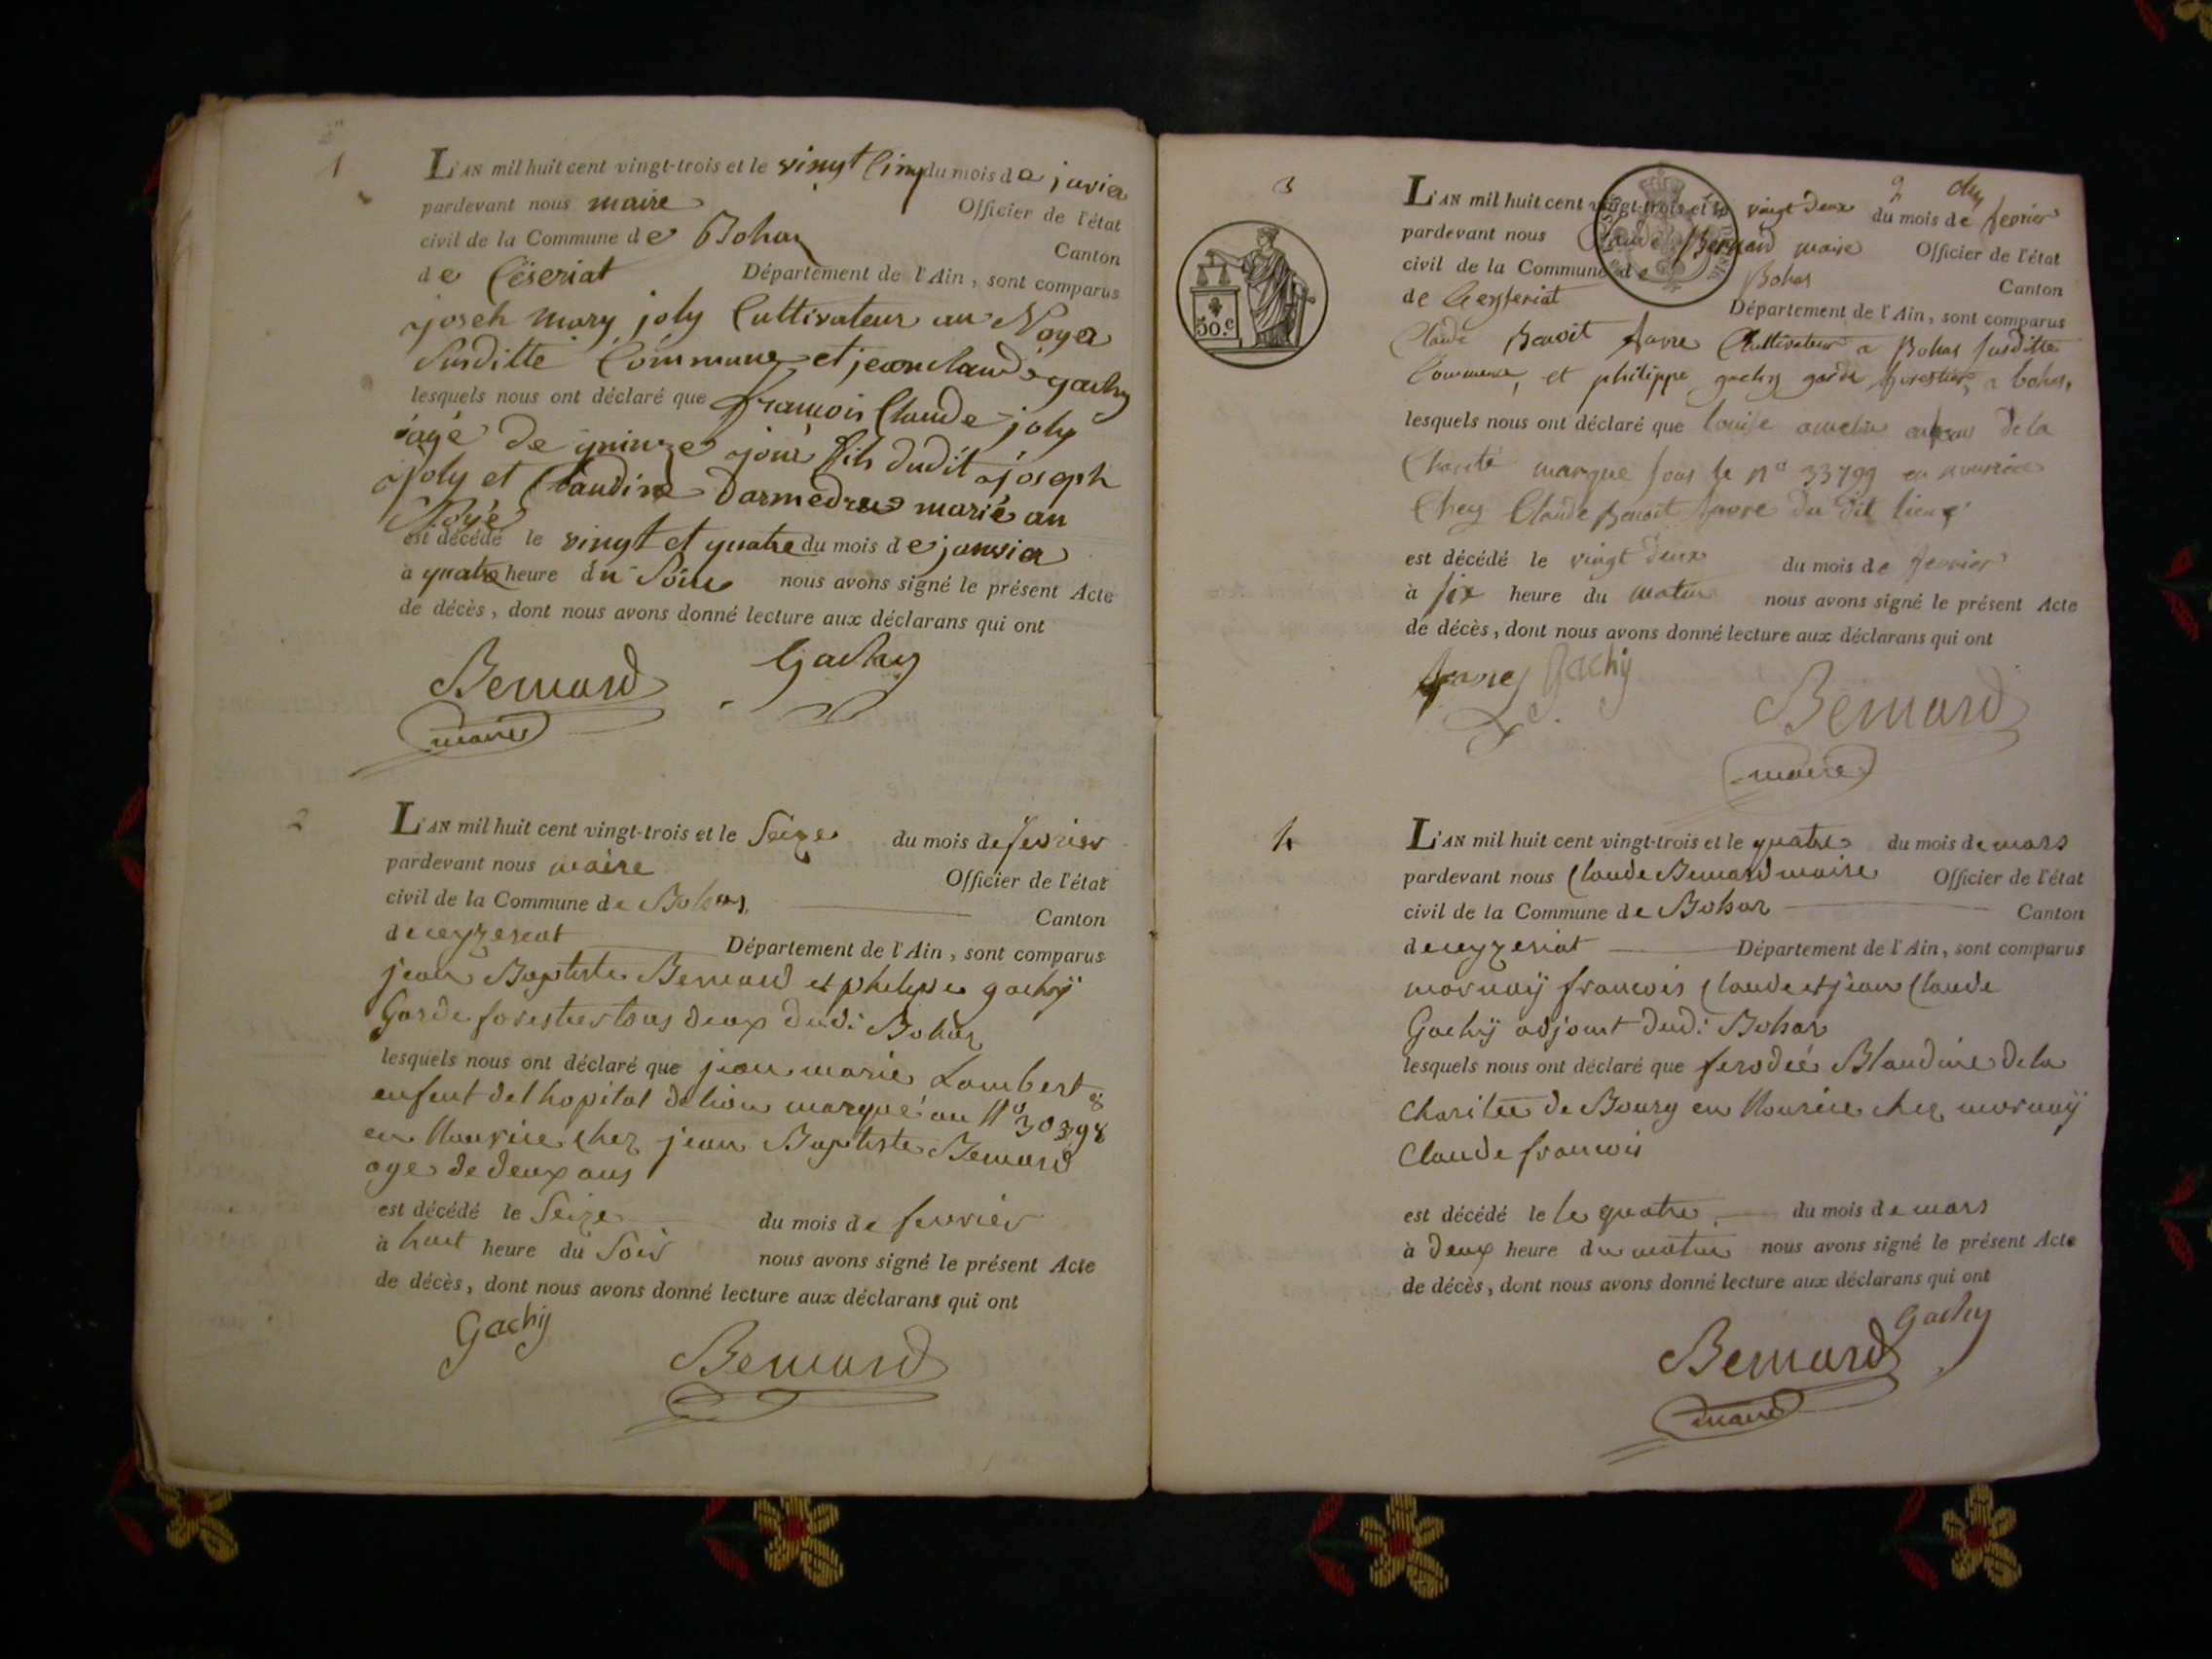 1
L'AN mil huit cent vingt-trois et le vingt Cinq du mois de javier
pardevant nous maire Officier de l'état
civil de la Commune de Bohas Canton
de Céseriat Département de l'Ain, sont comparus
joseh mary joly Cultivateur au Noyer
Susditte Commune et jean claude gachy
lesquels nous ont déclaré que francois Claude joly
agé de quinze jour fils dudit joseph
joly et Claudine Darmedru marié au
Noyé
est décédé le vingt et quatre du mois de janvier
à quatre heure du Soir nous avons signé le présent Acte
de décès, dont nous avons donné lecture aux déclarans qui ont
Bernard Gachy
maire
2
L'AN mil huit cent vingt-trois et le Seize du mois de fevrier
pardevant nous maire Officier de l'état
civil de la Commune de Bohas Canton
de ceyzeriat Département de l'Ain, sont comparus
jean Baptiste Bernard et philippe gachÿ
Garde forestier tous deux dudi: Bohas
lesquels nous ont déclaré que jean marie Lambert
enfent del hopital de lion marqué au N° 30398
en Nourice chez jean Baptiste Bernard
age de deux ans
est décédé le Seize du mois de fevrier
à huit heure du Soir nous avons signé le présent Acte
de décès, dont nous avons donné lecture aux déclarans qui ont
Gachÿ
Bernard
3
30.c
L'AN mil huit cent vingt-trois et le vingt deux du mois de fevrier
pardevant nous Claude Bernard maire Officier de l'état
civil de la Commune de Bohas Canton
de Ceyseriat Département de l'Ain, sont comparus
Claude Benoit favre Cultivateur a Bohas Susditte
Commune, et philippe gachy garde forestier a bohas,
lesquels nous ont déclaré que louise de la
Charité marque sous le n° 33799 en nourice
Chez Claude Benoit favre du dit lieux
est décédé le vingt deux du mois de fevrier
à six heure du matin nous avons signé le présent Acte
de décès, dont nous avons donné lecture aux déclarans qui ont
favre Gachÿ
Bernard
maire
4
L'AN mil huit cent vingt-trois et le quatre du mois de mars
pardevant nous Claude Bernard maire Officier de l'état
civil de la Commune de Bohas Canton
de ceyzeriat Département de l'Ain, sont comparus
mornaÿ francois Claude et jean Claude
Gachÿ adjoint dudi: Bohas
lesquels nous ont déclaré que Blandine dela
Charitee de Bourg en Nourice chez mornaÿ
Claude francois
est décédé le le quatre du mois de mars
à Deux heure du matin nous avons signé le présent Acte
de décès, dont nous avons donné lecture aux déclarans qui ont
Gachy
Bernard
maire